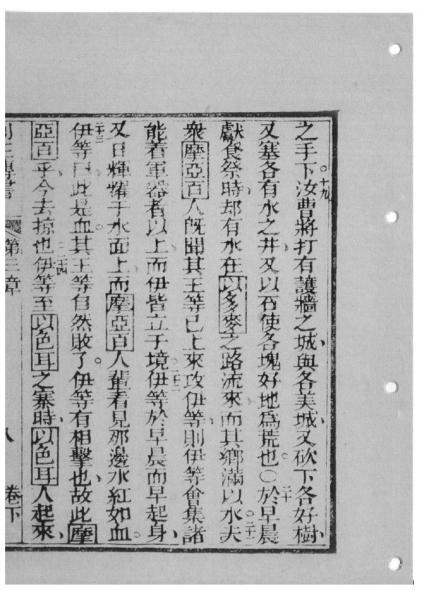 之手下汝曹將打有護牆之城與各美城又砍下各好樹
十九
又塞各有水之井又以石使各塊好地為荒也〇於早晨
二十
獻食祭時却有水在以多麥之路流來而其鄉滿以水夫
二一
衆摩亞百人既聞其王等已上來攻伊等則伊等會集諸
能着軍器者以上而伊皆立于境伊等於早晨而早起身
二二
又日輝耀于水面上而摩亞百人輩看見那邊水紅如血
伊等曰此是血其王等自然敗了伊等有相擊也故此摩
二三
亞百乎今去掠也伊等至以色耳之寨時以色耳人起來
二四
第三章
八
卷下